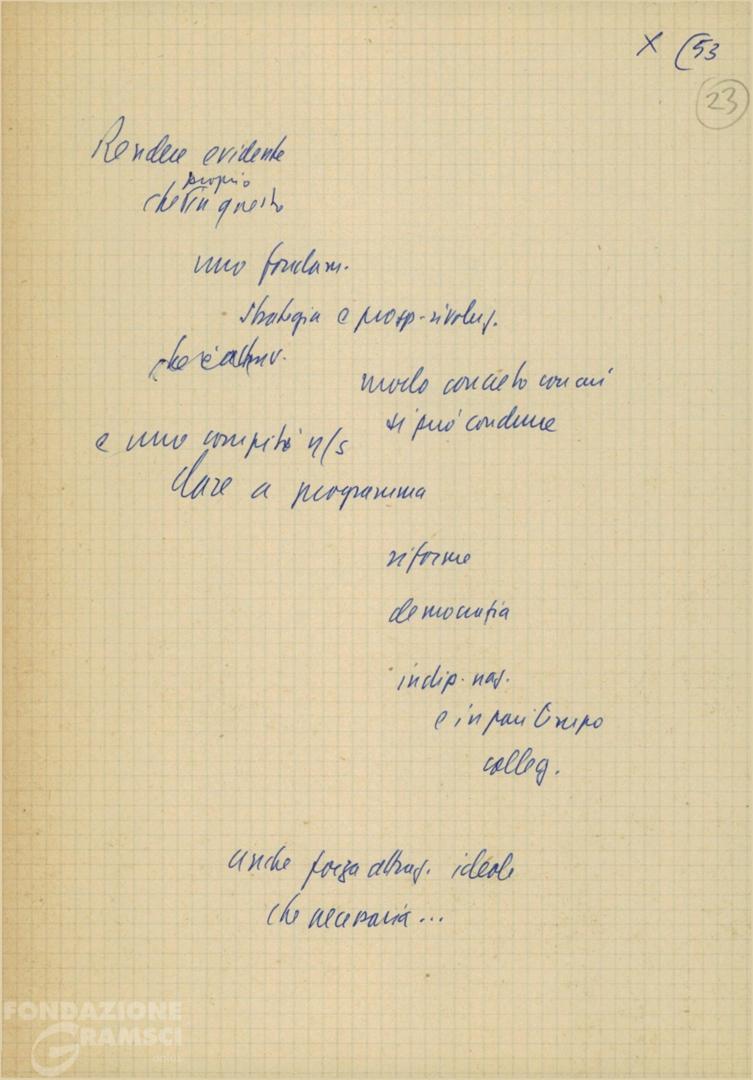 X (53
23
Rendere evidente
proprio
che in questo
uno fondam.
strategia e prosp. rivoluz.
che è
modo concreto con cui
si può condurre
e uno compito n/s
dare a programma
riforme
democrazia
indip. naz.
e in pari tempo
colleg.
anche forza attraz. ideale
che necessaria...
FONDAZIONE
GRAMSCI
onlus